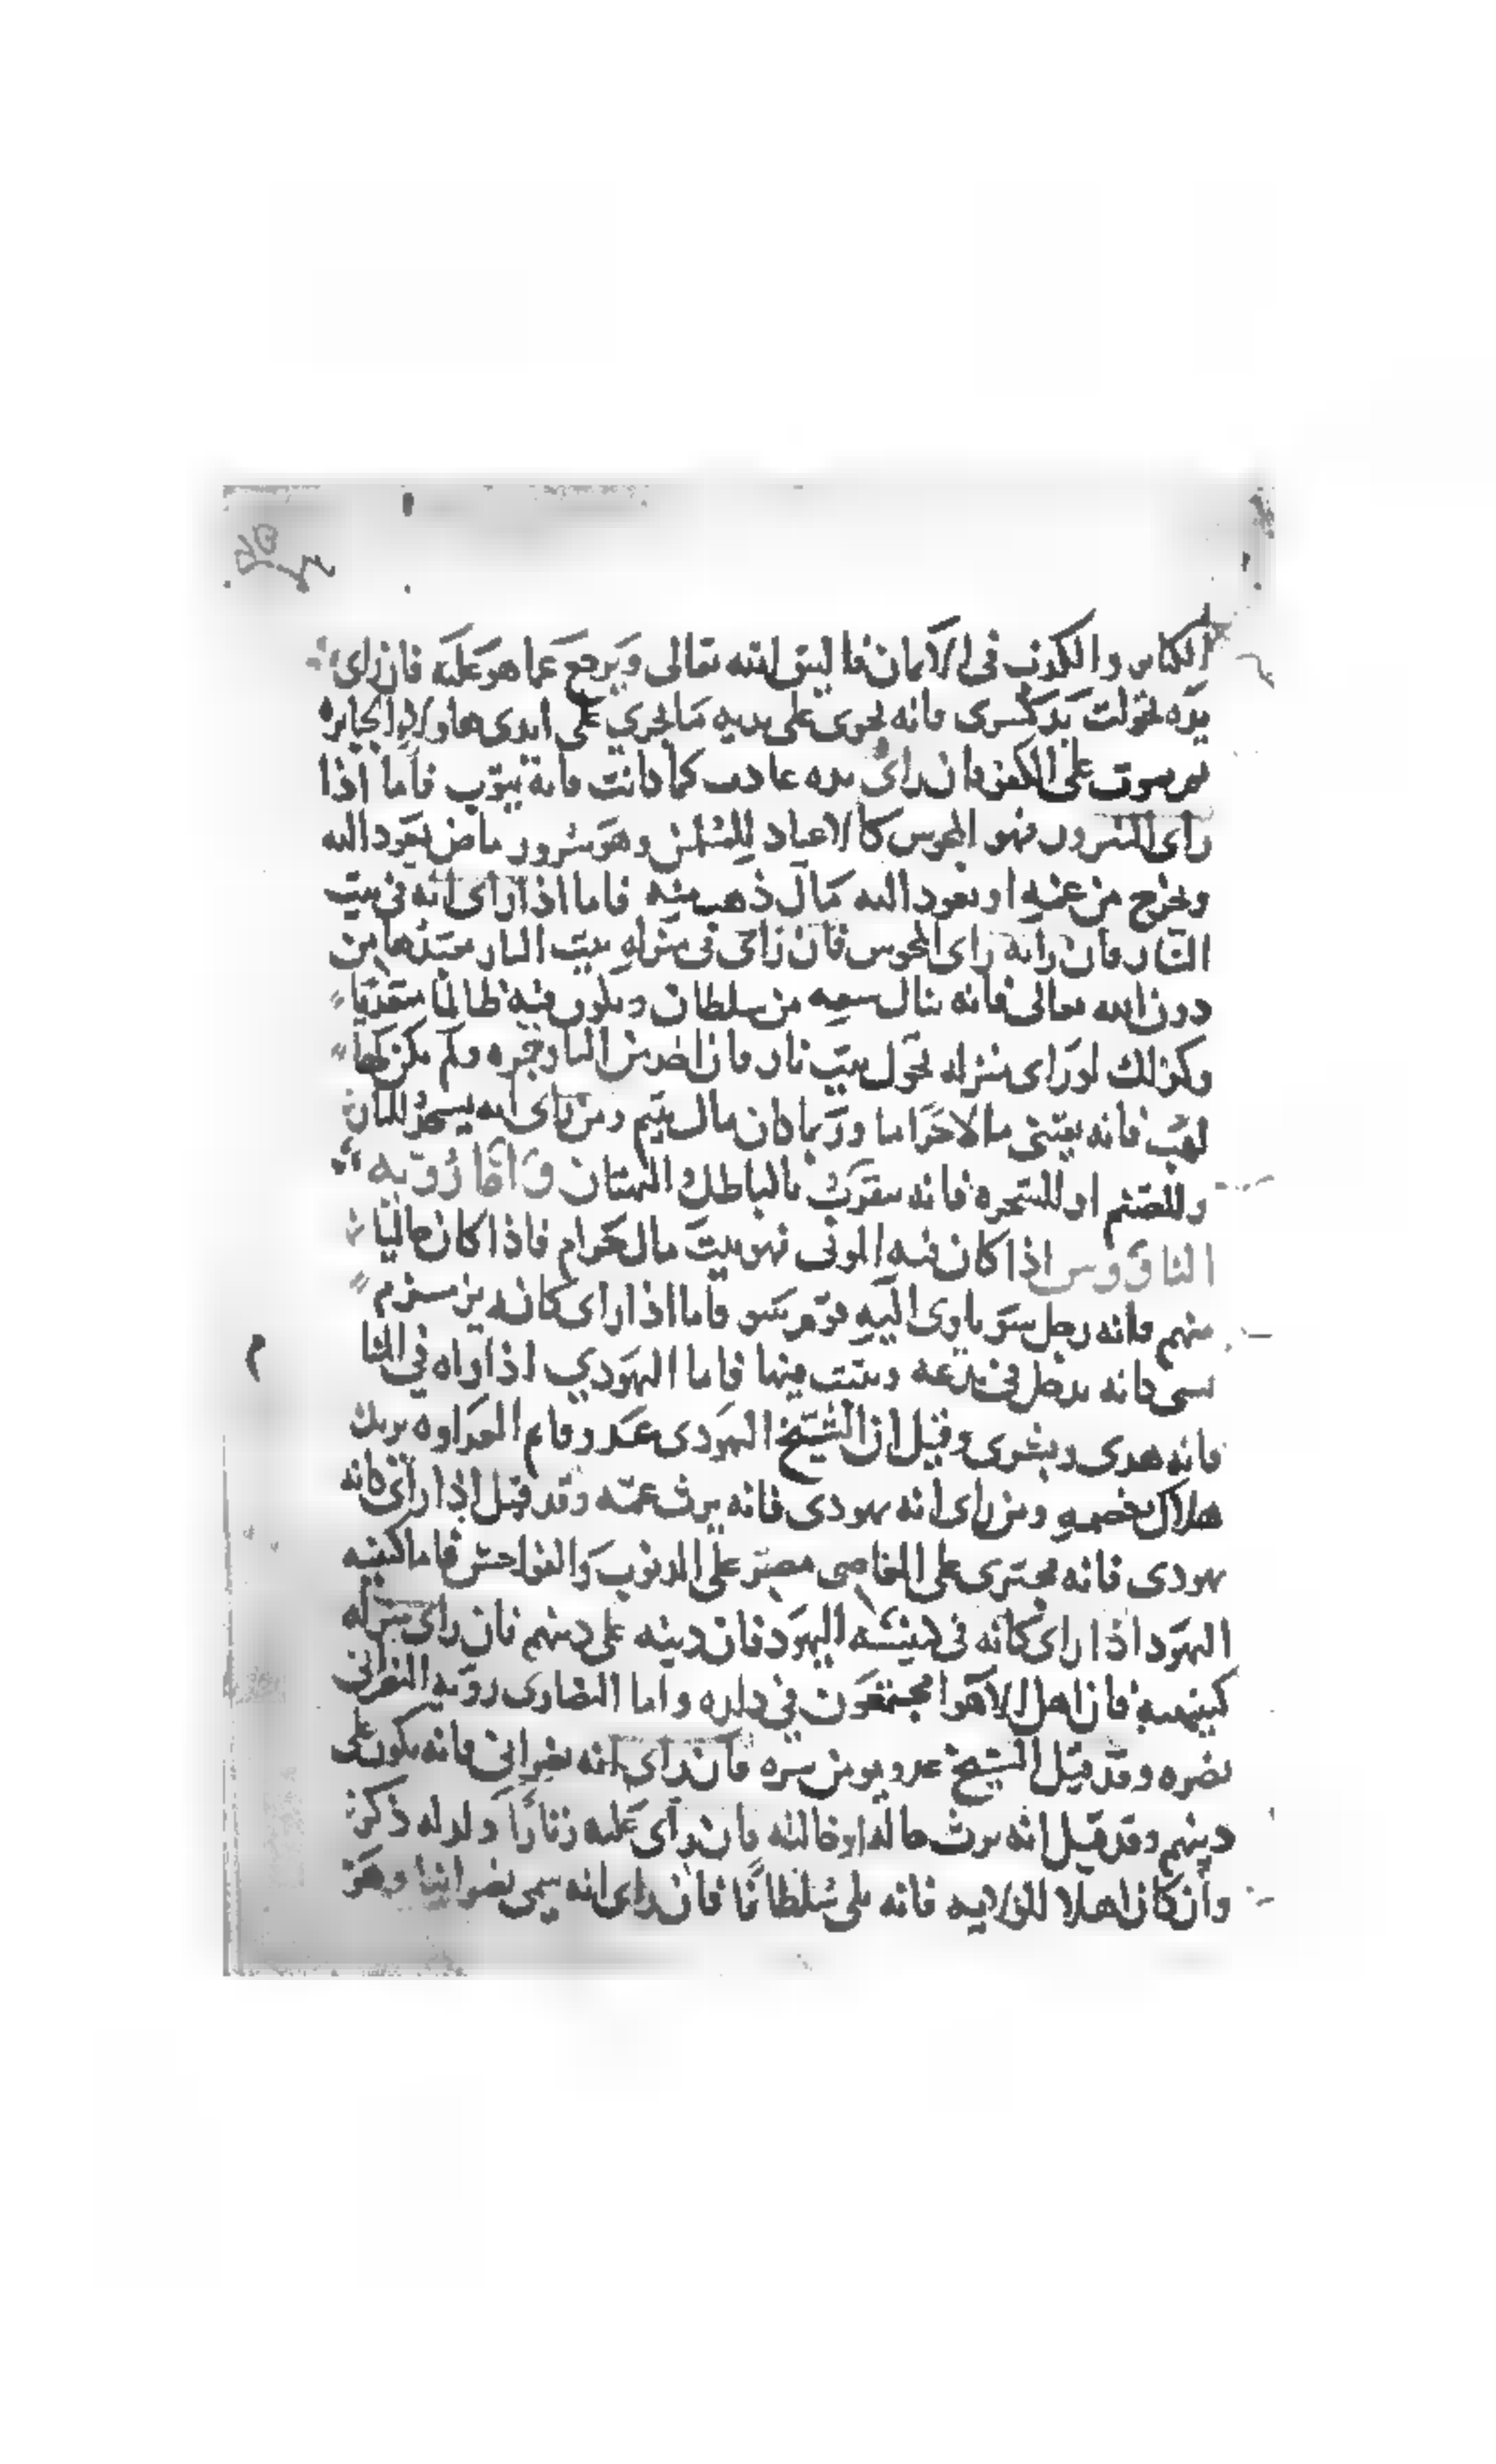 الكبائر والكذب في الايمان فاليتق الله تعالى ويرجع عما هو عليه فان راى
يده تحولت يد كسرى فانه يجرى على يديه ما يجري على ايدى هاولاي الجبابرة
ثم يموت على الكفر وان راى يده عادت كما كانت فانه يتوب فاما اذا
راى النسرور فهو المجوس كالاعياد للمسلمين وهو سرور ماض يعود اليه
ويخرج من غمه او يعود اليه مال ذهب منه فاما اذا راى انه في بيت
النار فان رايه راى المجوس فان راى في منزله بيت النار يعبدها من
دون الله تعالى فانه ينال سعه من سلطان ويكون فيه ظالما متعديا
وكذلك لو راى منزله تحول بيت نار فان اضرمن النار وغيره ولم يكن لها
لهب فانه يقتني مالا حراما وربما كان مال يتيم ومن راى انه يسجد للنار
وللصنم او للشجره فانه يتقرب بالباطل والبهتان واما رويه
الناووس اذا كان فيه الموتى فهو بيت مال حرام فاذا كان خاليا
منهم فانه رجل سو ياوى اليه قوم سو فاما اذا راى كانه يزمزم
فانه يدخل في بدعه ويثبت فيها فاما اليهودي اذا راه في المنا
فانه هدى وبشرى وقيل ان الشيخ اليهودى عدو قايم العداوه يريد
هلاك خصمه ومن راى انه يهودى فانه يرث عمه وقد قيل اذا راى كانه
يهودى فانه مجترى على المعاصى مصر على الذنوب والفواحش فاما كنيسه
اليهود اذا راى كانه في كنيسه اليهود فان دينه على دينهم فان راى منزله
كنيسه فان اهل الاهوا مجتمعون في داره واما النصارى رويه النصرانى
نصره وقد قيل الشيخ عدو يومن شره فان راى انه نصرانى فانه يكون على
دينهم وقد قيل انه يرث خاله او خالته فان راى عليه زنارا ولد له ذكر
وان كان اهلا للولايه فانه يلى سلطانا فان راى انه سمى نصرانيا وهو